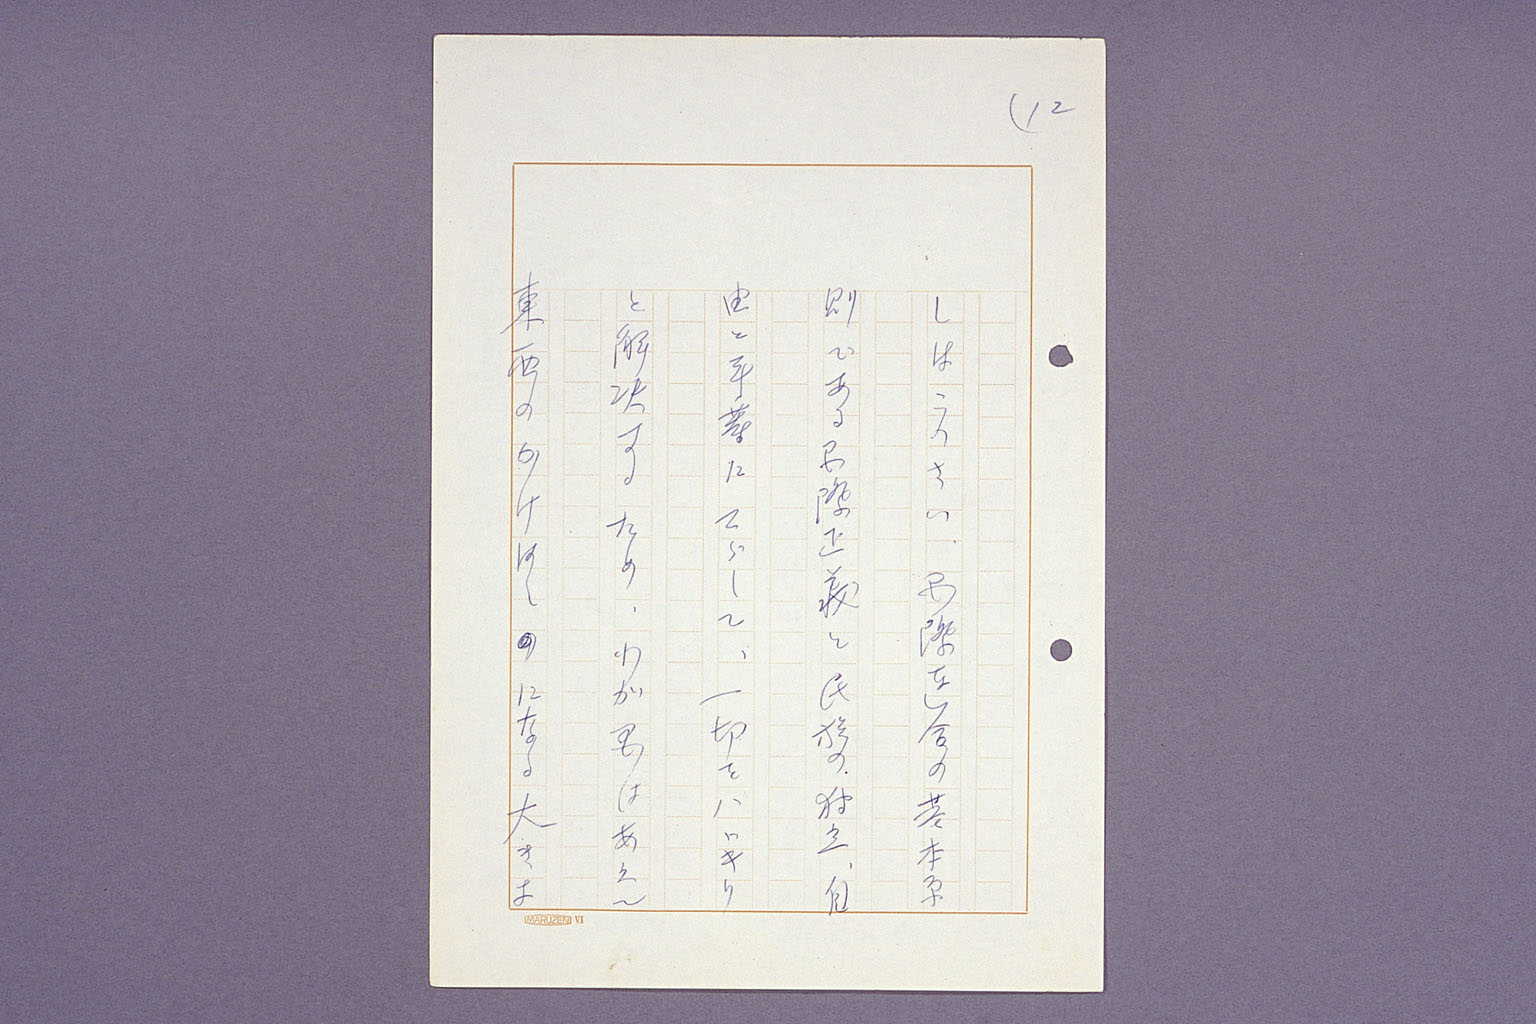 (12
しはこのさい、国際連合の基本原
則である国際正義と民族の独立、自
由と平等にてらして、一切をハッキリ
と解決するため、わが国はあえて
東西のかけはしになる大きな
MARUZEN VI